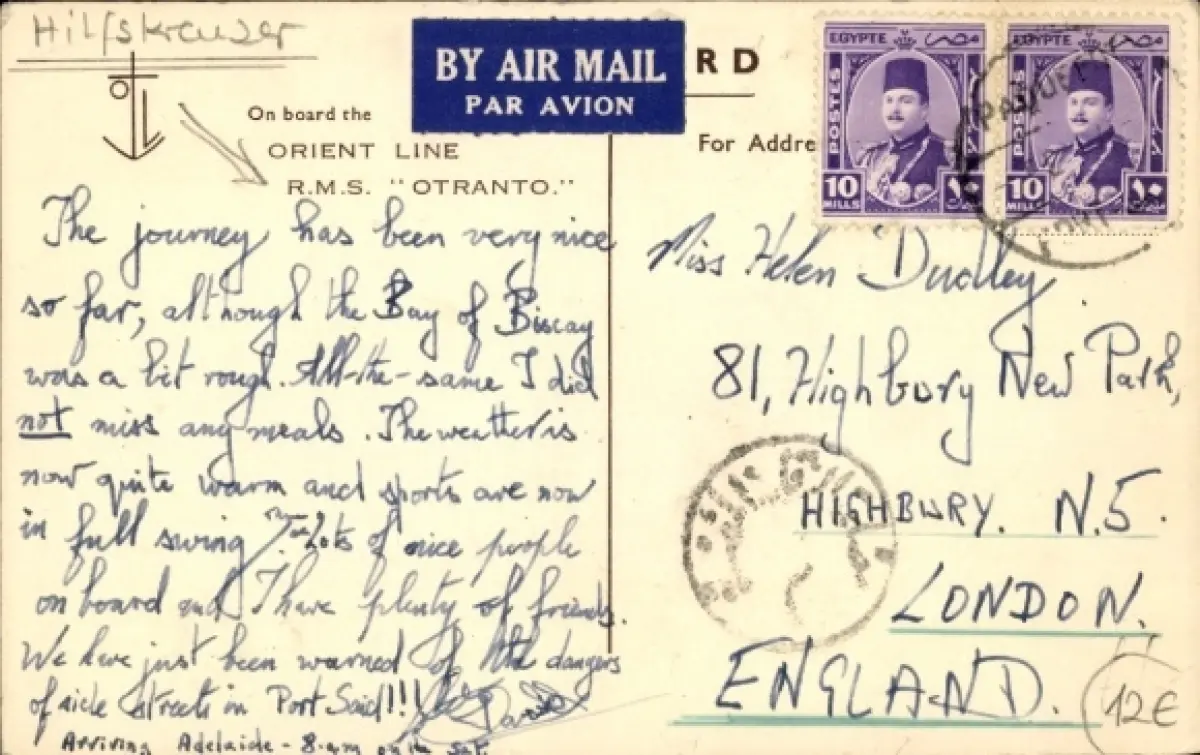 Hilfskreuzer
BY AIR MAIL
PAR AVION
RD
On board the
ORIENT LINE
R.M.S. "OTRANTO."
For Addre
EGYPTE مصر
POSTES
10
MILLS
١٠
EGYPTE مصر
POSTES
10
MILLS
١٠
PAQUEBOT
The journey has been very nice
so far, although the Bay of Biscay
was a bit rough. All-the-same I did
not miss any meals. The weather is
now quite warm and sports are now
in full swing. Lots of nice people
on board and I have plenty of friends.
We have just been warned of the dangers
of side streets in Port Said!!!
Arriving Adelaide - 8 am on Sat.
Miss Helen Dudley
81, Highbury New Park,
HIGHBURY. N.5.
LONDON.
ENGLAND.
12€